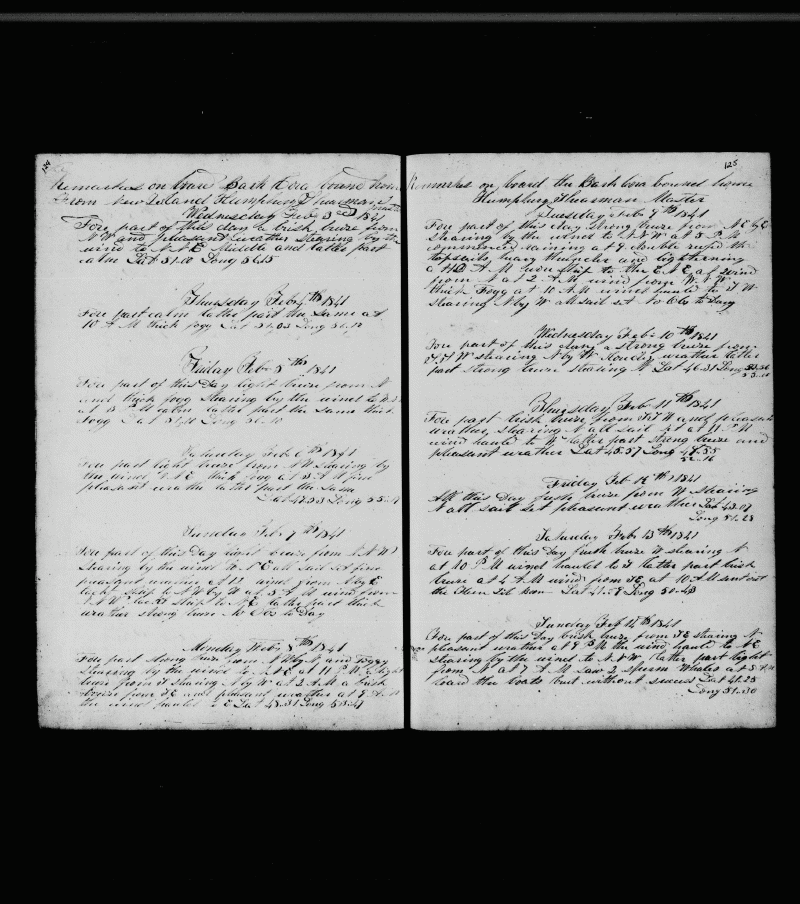 124
Remarks on board Bark Cora bound home
From New Zeland Humphrey Thearman
Master
Wednesday Feb 3rd 1841
Fore part of this day a brisk breze from
N W and pleasant weather stearing by the
wind to N N E Middle and latter part
calm Lat 51.00 Long 56.15
Thursday Feb 4th 1841
Fore part calm latter part the Same at
10 A M thick fogg Lat 51.03 Long 56.10
Friday Feb 5th 1841
Fore part of this Day light breze from N
and thick fogg Stearing by the wind to
at 8 P M calm latter part the Same thick
Fogg Lat Long 56.10
Saturday Feb 6th 1841
Fore part light breze from N W Stearing by
the wind N N E thick fogg at 8 A M fine
pleasant weather latter part the Same
Lat 49.53 Long 55
Sunday Feb 7th 1841
Fore part of this Day light breze from N N W
Stearing by the wind to N E all sail set fine
pleasant weather wind from N by E
tack Ship to N W by W at 3 A M wind from
N N W tackt Ship to N E latter part thick
weather strong breze No Obs to Day
Monday Feb 8th 1841
Fore part Strong breze from N W by N and Foggy
Stearing by the wind to N E at 11 P M a light
breze from stearing N by W at 2 A M a brisk
breze from S E and pleasant weather at 9 A M
the wind hauled S E Lat 48.31 Long 53.41
125
Remarks on board the Bark Cora bound home
Humphrey Thearman Master
Tuesday Feb 9th 1841
Fore part of this day Strong breze from N E by E
Stearing by the wind to N N W at 5 P M
commenced raining at 9 double reefd the
topsails heavy thunder and lightening
at 12 A M wore ship to the E N E at wind
from N at 2 A M wind from W N W
thick Fogg at 10 A M wind hauld to S W
stearing N by W all sail set No Obs to Day
Wednesday Feb 10th 1841
Fore part of this day a strong breze from
S S W stearing N by W Cloudy weather latter
part strong breze stearing N Lat 46.31 Long 53.56
Thursday Feb 11th 1841
Fore part brisk breze from S S W and pleasant
weather Stearing N all sail set at 11 P M
wind hauld to W latter part strong breze and
pleasant weather Lat 45.57 Long
52.16
Friday Feb 12th 1841
All this Day fresh breze from W stearing
N all sail set pleasant weather Lat 43.07
Long 51.28
Saturday Feb 13th 1841
Fore part of this Day fresh breze W stearing N
at 10 P M wind hauled to S latter part brisk
breze at 4 A M wind from S E at 10 A M sent out
the Lat 41. Long 50.43
Sunday Feb 14th 1841
Fore part of this Day brisk breze from S E stearing N
pleasant weather at 9 P M the wind hauld to N E
stearing by the wind to N N W latter part light
from N at 7 A M Saw 2 Sperm Whales at 8 A M
loard the boats but without success Lat 41.25
Long 51.30